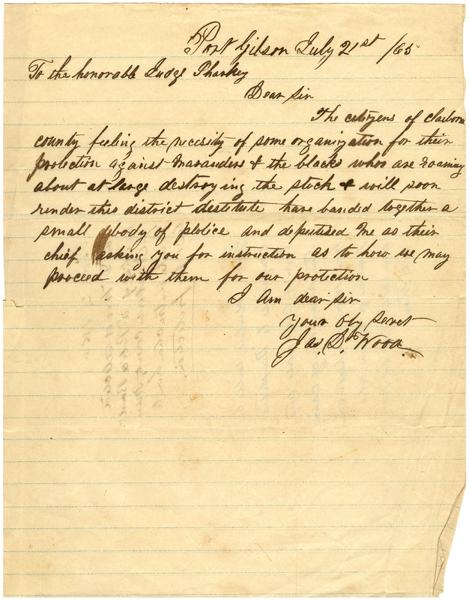 Port Gibson July 21st /65
To the honorable Judge Sharkey
Dear Sir
The citizens of claiborn
county feeling the necisity of some organization for their
protection against marauders & the blacks who are roaming
about at large destroying the stock & will soon
render this district destitute have banded together a
small body of police and deputised me as their
chief asking you for instruction as to how we may
proceed with them for our protection
I Am dear sir
Your Oby Servt
Jas. S. Wood